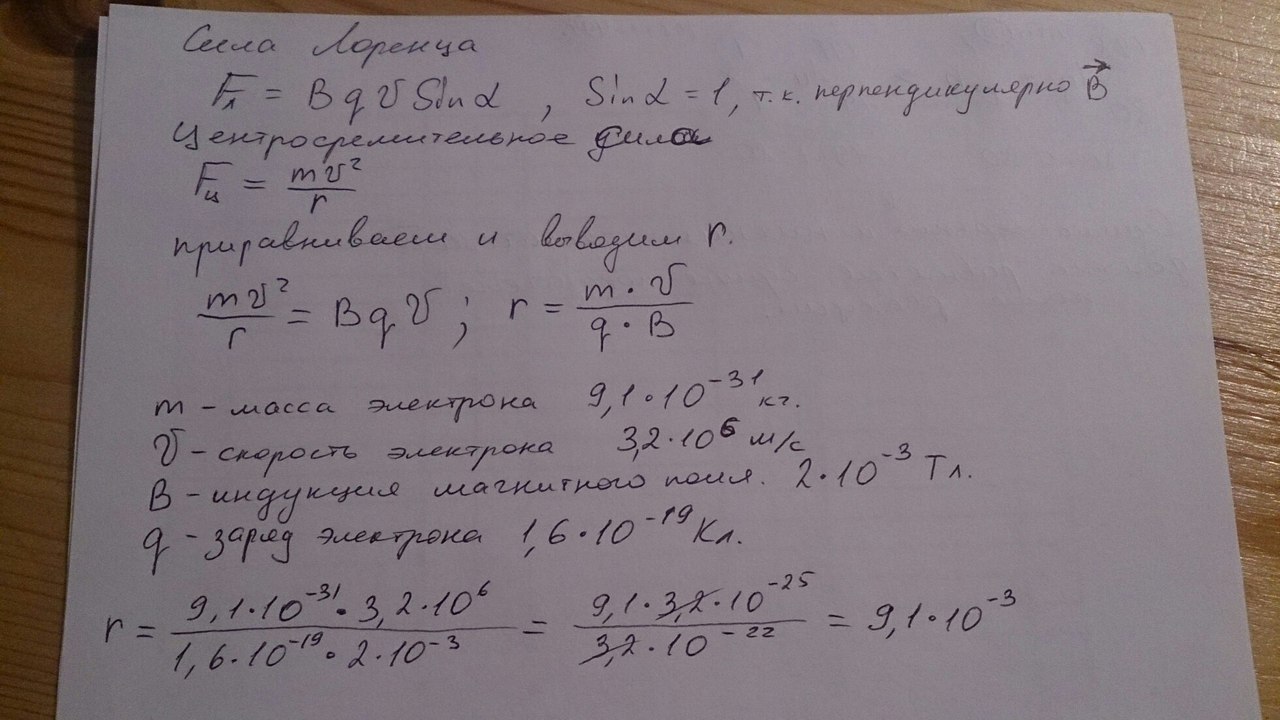 Сила Лоренца
Fл = B q v Sin α , Sin α = 1, т.к. перпендикулярно B⃗
Центросремительное сила
Fц = mv²/r
приравниваем и выводим r.
mv²/r = B q v ; r = m · v / q · B
m - масса электрона 9,1·10⁻³¹ кг.
v - скорость электрона 3,2·10⁶ м/с
B - индукция магнитного поля. 2·10⁻³ Тл.
q - заряд электрона 1,6·10⁻¹⁹ Кл.
r = 9,1·10⁻³¹ · 3,2·10⁶ / 1,6·10⁻¹⁹ · 2·10⁻³ = 9,1·3,2·10⁻²⁵ / 3,2·10⁻²² = 9,1·10⁻³